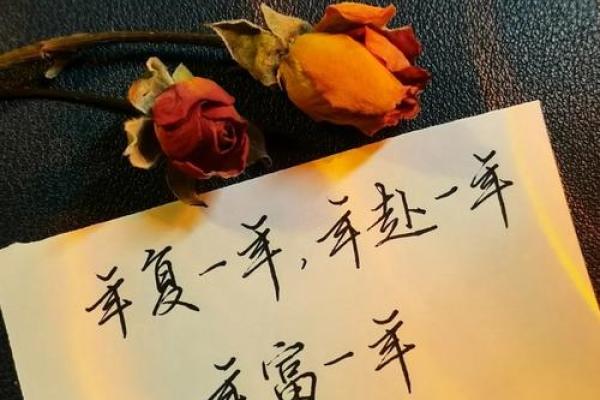 年复一年，年赴一年
年富一年